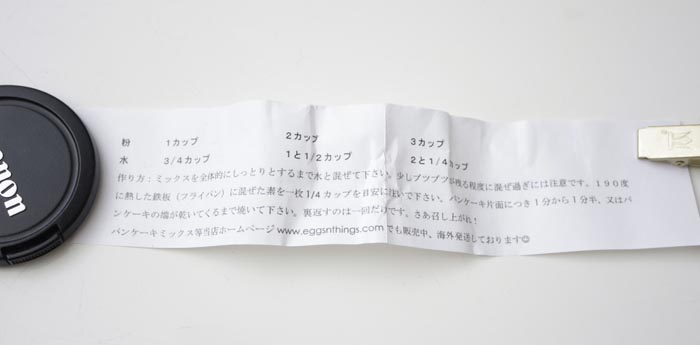 粉 1カップ 2カップ 3カップ
水 3/4カップ 1と1/2カップ 2と1/4カップ
作り方：ミックスを全体的にしっとりとするまで水と混ぜて下さい。少しブツブツが残る程度に混ぜ過ぎには注意です。190度
に熱した鉄板（フライパン）に混ぜた素を一枚1/4カップを目安に注いで下さい。パンケーキ片面につき1分から1分半、又はパ
ンケーキの端が乾いてくるまで焼いて下さい。裏返すのは一回だけです。さあ召し上がれ！
パンケーキミックス等当店ホームページ www.eggsnthings.com でも販売中、海外発送しております☺
non